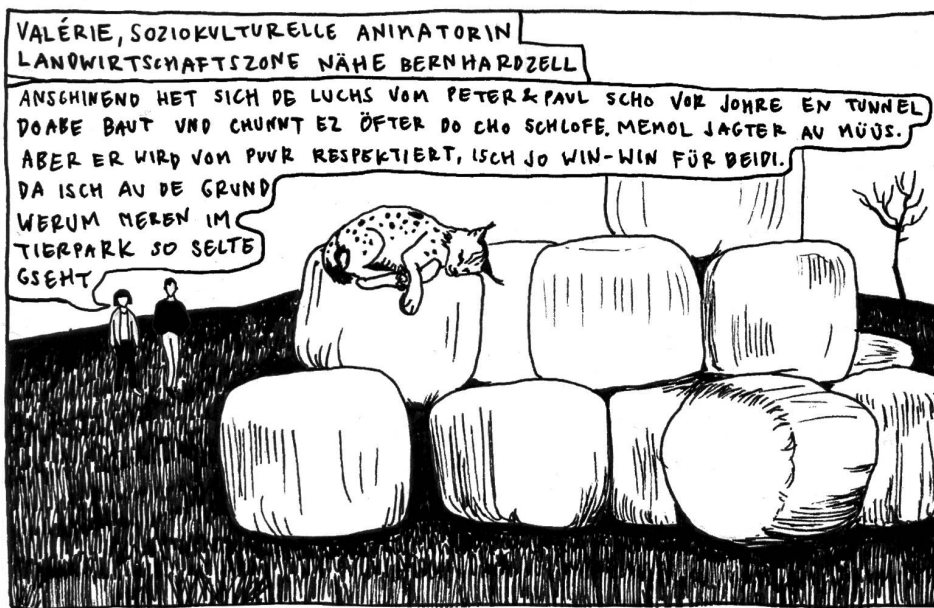 VALÉRIE, SOZIOKULTURELLE ANIMATORIN
LANDWIRTSCHAFTSZONE NÄHE BERNHARDZELL
ANSCHINEND HET SICH DE LUCHS VOM PETER & PAUL SCHO VOR JOHRE EN TUNNEL
DOABE BAUT UND CHUNNT EZ ÖFTER DO CHO SCHLOFE. MEMOL JAGTER AU MÜÜS.
ABER ER WIRD VOM PUUR RESPEKTIERT, ISCH JO WIN-WIN FÜR BEIDI.
DA ISCH AU DE GRUND
WERUM MEREN IM
TIERPARK SO SELTE
GSEHT